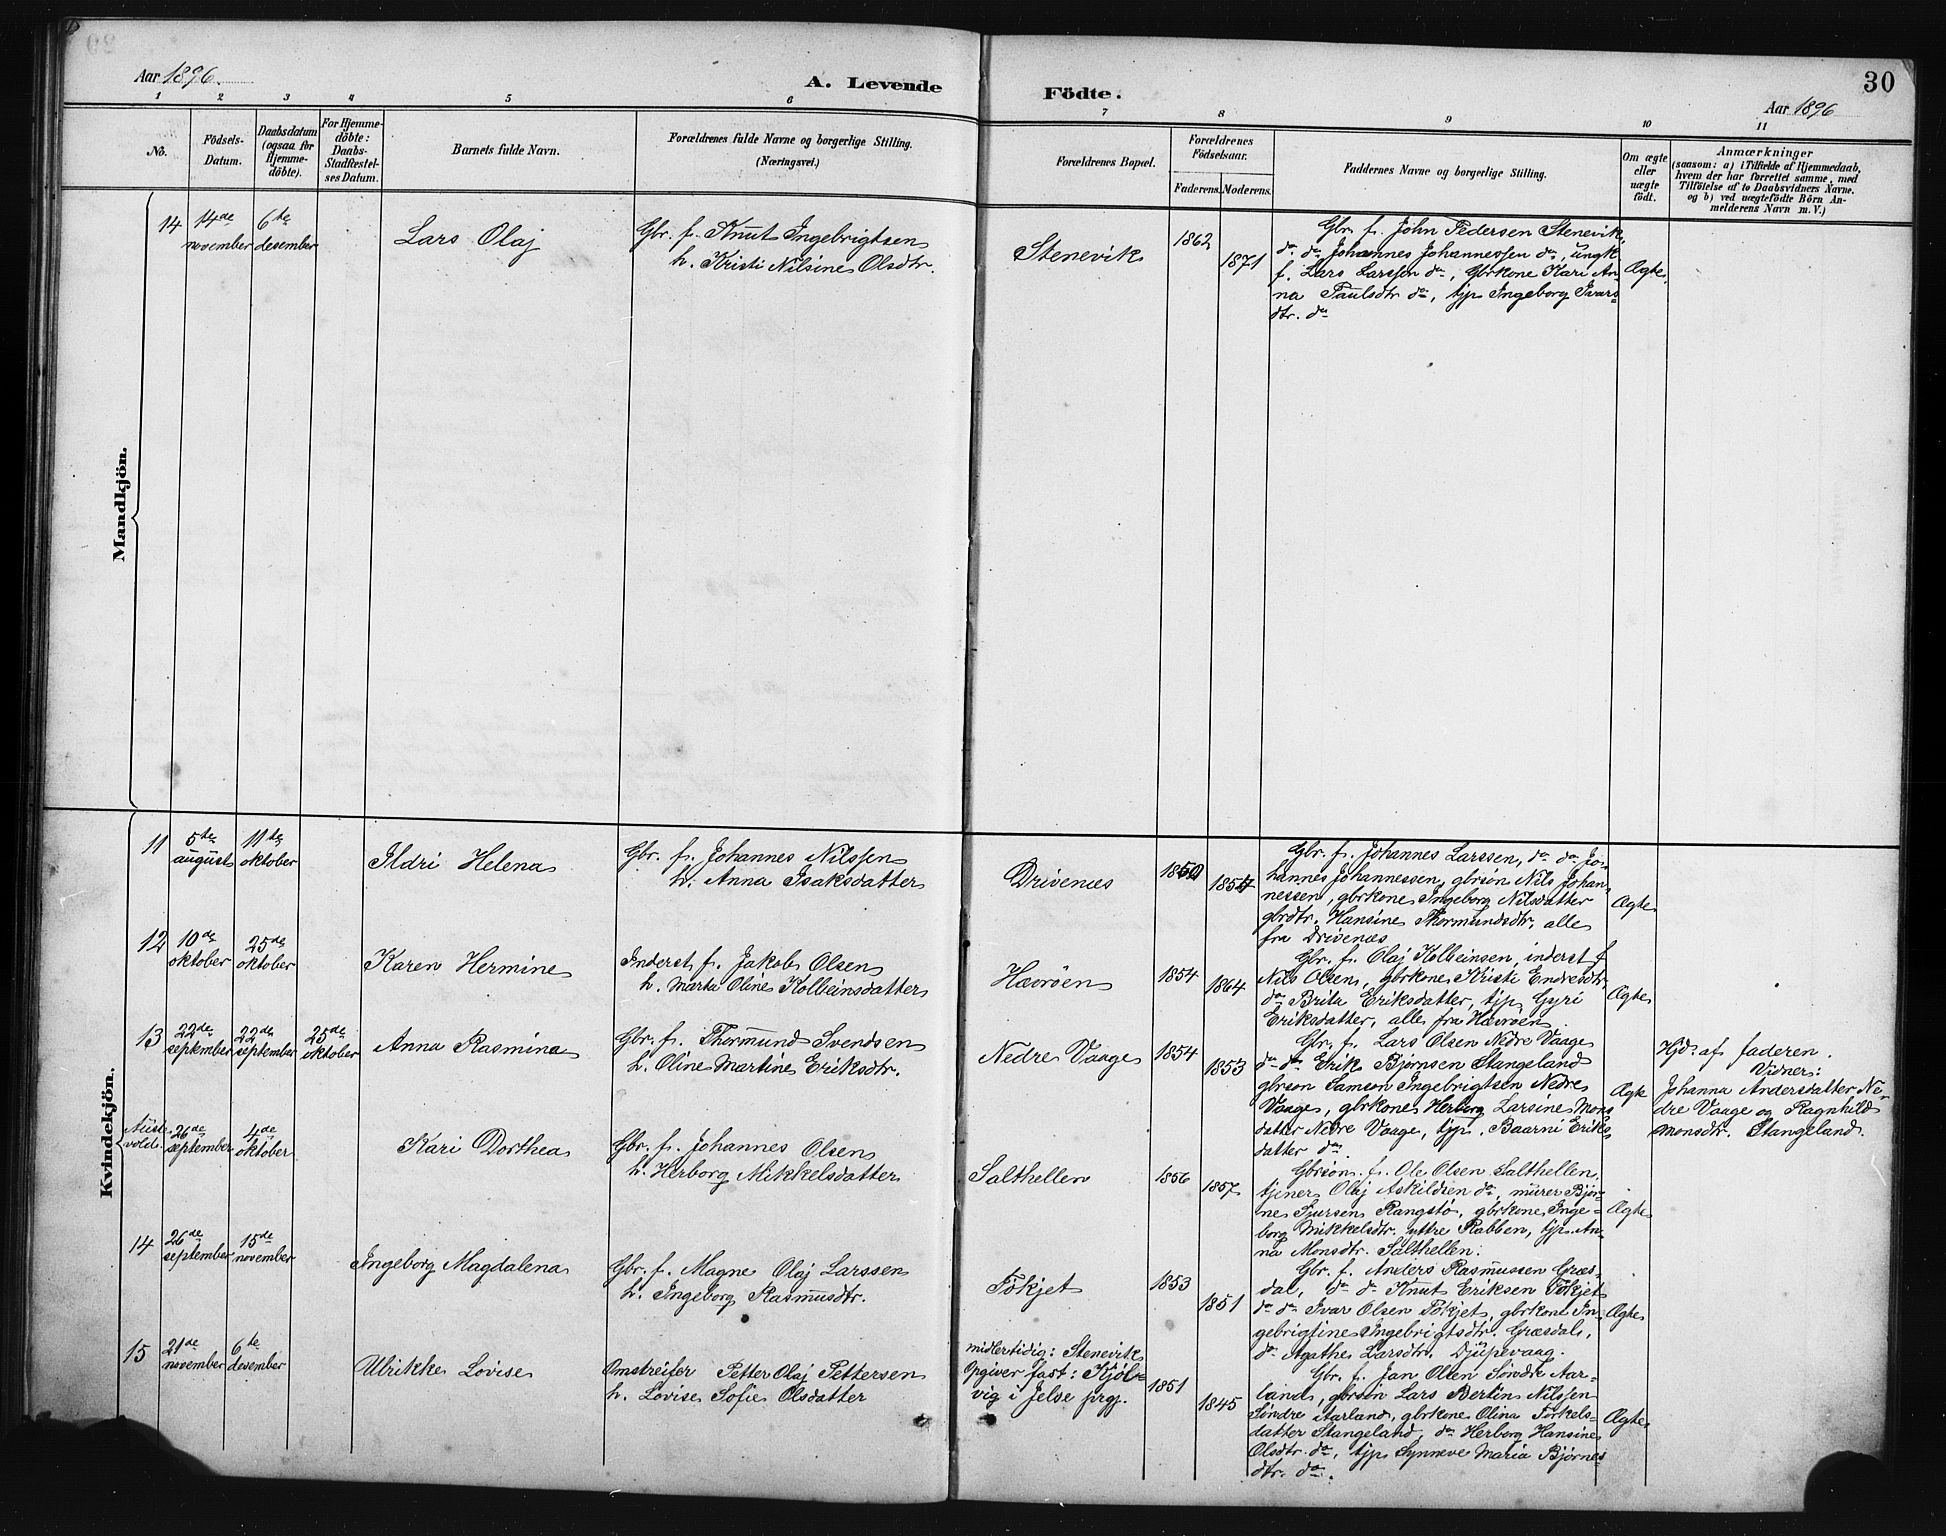 Aar 1896.
A. Levende Födte.
30
Aar 1896
1 2 3 4 5 6 7 8 9 10 11
No.
Födsels-
Datum.
Daabsdatum
(ogsaa for
Hjemme-
döbte).
For Hjemme-
döbte:
Daabs-
Stadfæstel-
ses Datum.
Barnets fulde Navn.
Forældrenes fulde Navne og borgerlige Stilling.
(Næringsvei.)
Forældrenes Bopæl.
Forældrenes
Födselsaar.
Faderens.
Moderens.
Faddernes Navne og borgerlige Stilling.
Om ægte
eller
uægte
födt.
Anmærkninger
(saasom: a) i Tilfælde af Hjemmedaab,
hvem der har forrettet samme, med
Tilföielse af to Daabsvidners Navne.
og b) ved uægtefödte Börn An-
melderens Navn m. V.)
Mandkjön.
14
14de
november
6te
desember
Lars Olaj
Gbr. f. Knut Ingebrigtsen
h. Kristi Nilsine Olsdtr.
Stenevik
1862
1871
Gbr. f. John Pedersen Stenevik,
do do Johannes Johannessen do, ungk
f. Lars Larssen do, Gbrkone Kari An-
na Paulsdtr do, tjp Ingeborg Ivars-
dtr. do
Ægte
Kvindekjön.
11
5te
august
11te
oktober
Ildri Helena
Gbr. f. Johannes Nilssen
h. Anna Isaksdatter
Drivenes
1850
1854
Gbr. f. Johannes Larssen, do do Jo-
hannes Johannessen, gbrsön Nils Johan-
nessen, gbrkone Ingeborg Nilsdatter
gbrdtr. Hansine Thormundsdtr, alle
fra Drivenes
Ægte
12
10de
oktober
25de
oktober
Karen Hermine
Inderst f. Jakob Olsen
h. Marta Oline Kolbeinsdatter
Hævröen
1854
1864
Gbr. f. Olaj Kolbeinsen, inderst f
Nils Olsen, gbrkone Kristi Endresdtr,
do Brita Eriksdatter, tjp Gyri
Eriksdatter, alle fra Hævröen
Ægte
13
22de
september
22de
september
25de
oktober
Anna Rasmina
Gbr. f. Thormund Svendsen
h. Oline Martine Eriksdtr.
Nedre Vaage
1854
1853
Gbr. f. Lars Olsen Nedre Vaage
do do Erik Bjørnsen Stangeland
gbrson Samson Ingebrigtsen Nedre
Vaage, gbrkone Herborg Larsine Mons
datter Nedre Vaage, tjp. Baarni Eriks
datter do.
Ægte
Hjd. af faderen.
Vidner:
Johanna Andersdatter Ne-
dre Vaage og Ragnhild
Monsdtr. Stangeland.
Auste-
vold
26de
september
4de
oktober
Kari Dorthea
Gbr. f. Johannes Olsen
h. Herborg Mikkelsdatter
Salthellen
1856
1857
Gbrsön f. Ole Olsen Salthellen,
tjener Olaj Askildsen do, murer Bjør-
ne Sjursen Rangstø, gbrkone Inge-
borg Mikkelsdtr. uttre Rabben, tjp. An-
na Monsdtr. Salthellen.
Ægte
14
26de
september
15de
november
Ingeborg Magdalena
Gbr. f. Magne Olaj Larssen
h. Ingeborg Rasmusdtr.
Tökjet
1853
1851
Gbr. f. Anders Rasmussen Græs-
dal, do do Knut Eriksen Tökjet
do do Ivar Olsen Tökjet, gbrkone In-
gebrigtine Ingebrigtsdtr. Græsdal,
do Agathe Larsdtr. Djupevaag.
Ægte
15
21de
november
6te
desember
Ulrikke Lovise
Omstreifer Petter Olaj Pettersen
h. Lovise Sofie Olsdatter
midlertidig: Stenevik
Opgiver fast: Kjöl-
vig i Jelse prgj.
1851
1845
Gbr. f. Jan Olsen Söndre Aar-
land, gbrsön Lars Bertin Nilssen
Söndre Aarland, gbrkone Olina Torkels-
datter Stangeland, do Herborg Hansine
Olsdtr. do, tjp Synneve Maria Bjørnes
dtr. do.
Ægte